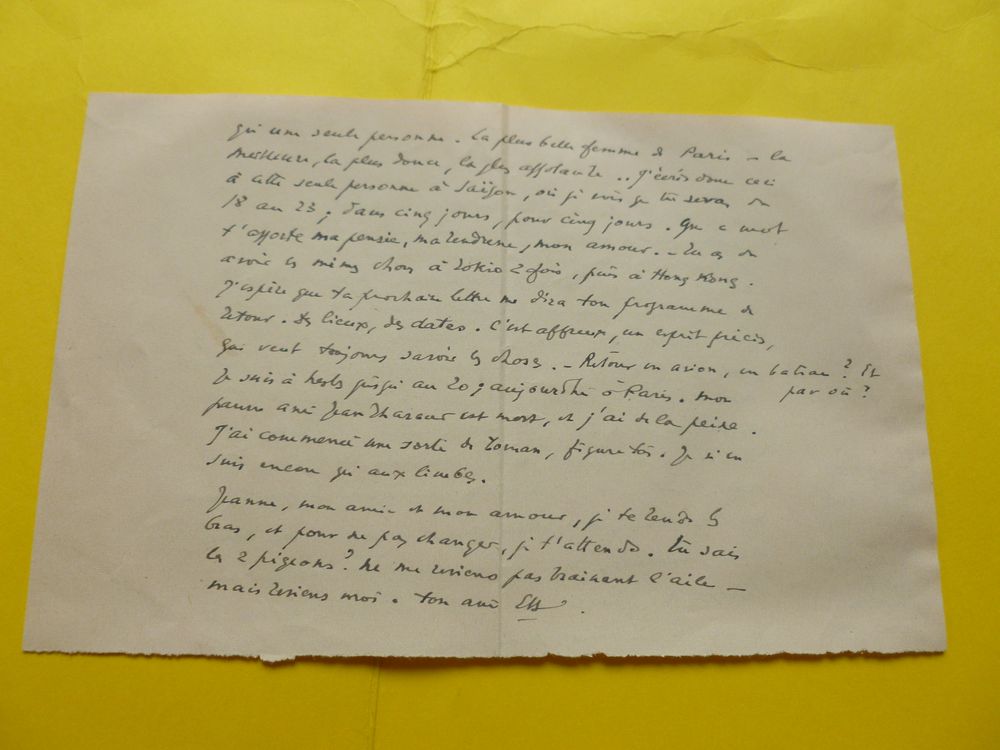 qui une seule personne. La plus belle femme de Paris – la
meilleure, la plus douce, la plus affolante.. J'écris donc ceci
à cette seule personne à Saïgon, où je vois que tu seras du
18 au 23. Dans cinq jours, pour cinq jours. Que ce mot
t'apporte ma pensée, ma tendresse, mon amour. – Tu as dû
avoir les mêmes choses à Tokio 2 fois, puis à Hong Kong.
J'espère que ta prochaine lettre me dira ton programme de
retour. Des lieux, des dates. C'est affreux, un esprit précis,
qui veut toujours savoir les choses. – Retour en avion, en bateau ? Et
par où ?
Je suis à jusqu'au 20 ; aujourd'hui à Paris. Mon
pauvre ami Jean Tharaud est mort, et j'ai de la peine.
J'ai commencé une sorte de roman, figure-toi. Je n'en
suis encore qu'aux limbes.
Jeanne, mon amie et mon amour, je te tends les
bras, et pour ne pas changer, je t'attends. Tu sais
les 2 pigeons ? Ne me reviens pas traînant l'aile –
mais reviens moi. Ton ami